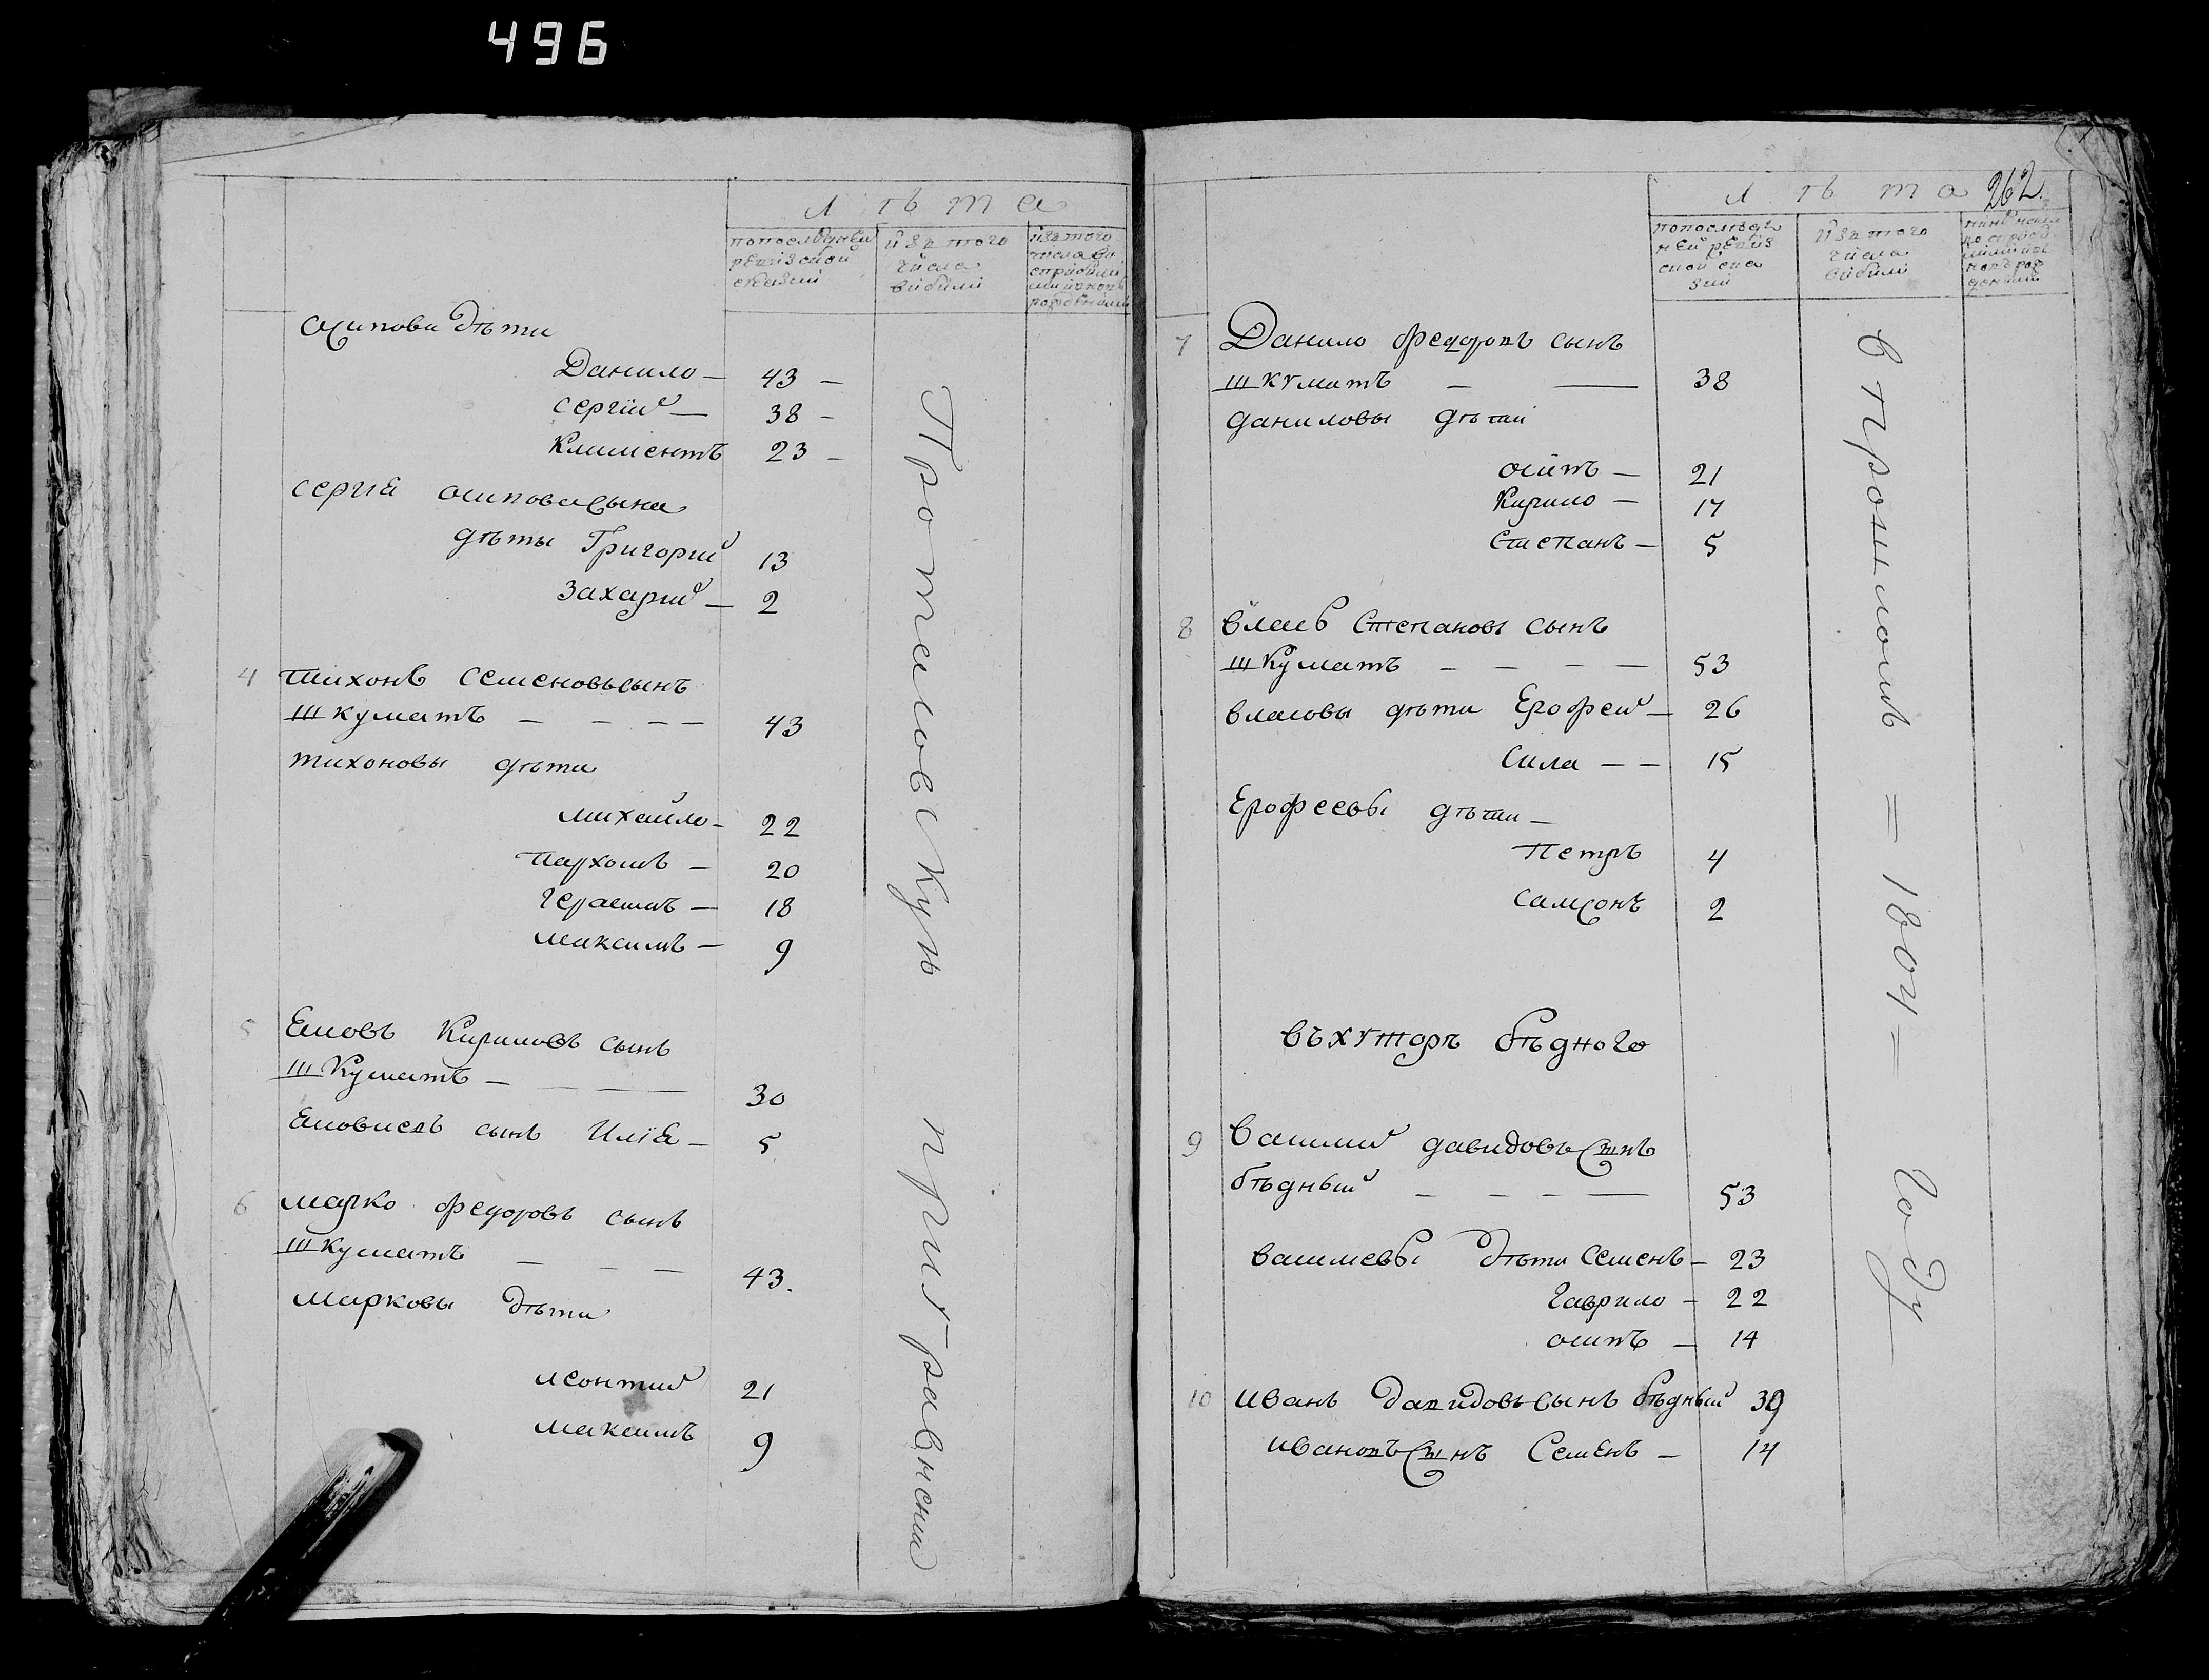 496
Лѣта
попоследней ревизской сказки
изъ того числа выбыли
Осипови дѣти
Данило — 43 —
Сергий — 38 —
Климентъ 23 —
Сергия Осипова сына
дѣты Григорий 13
Захарий — 2
4 Тихонъ Семеновъ сынъ
Шкуматъ — — — — 43
Тихоновы дѣти
Михайло — 22
Пархомъ — 20
Герасимъ — 18
Максимъ — 9
5 Кириловъ сынъ
Шкуматъ — — — 30
сынъ Илія — 5
6 Марко Федоровъ сынъ
Шкуматъ — — — 43.
Марковы дѣти
Леонтий 21
Максимъ 9
262
Лѣта
попослѣдней ревизской сказки
изъ того числа выбыли
7 Данило Федоровъ сынъ
Шкуматъ — — 38
Даниловы дѣти
Осипъ — 21
Кирило — 17
Степанъ — 5
8 Власъ Степановъ сынъ
Шкуматъ — — — — 53
Власовы дѣти Ерофей — 26
Сила — — 15
Ерофеевы дѣти —
Петръ 4
Самсонъ 2
въ хуторѣ бѣдного
9 Василий Давидовъ сынъ
бѣдный — — — — 53
Василевы дѣти Семенъ — 23
Гаврило — 22
Осипъ — 14
10 Иванъ Давидовъ сынъ бѣдный 39
Ивановъ сынъ Семенъ — 14
в прошломъ = 1804 = году